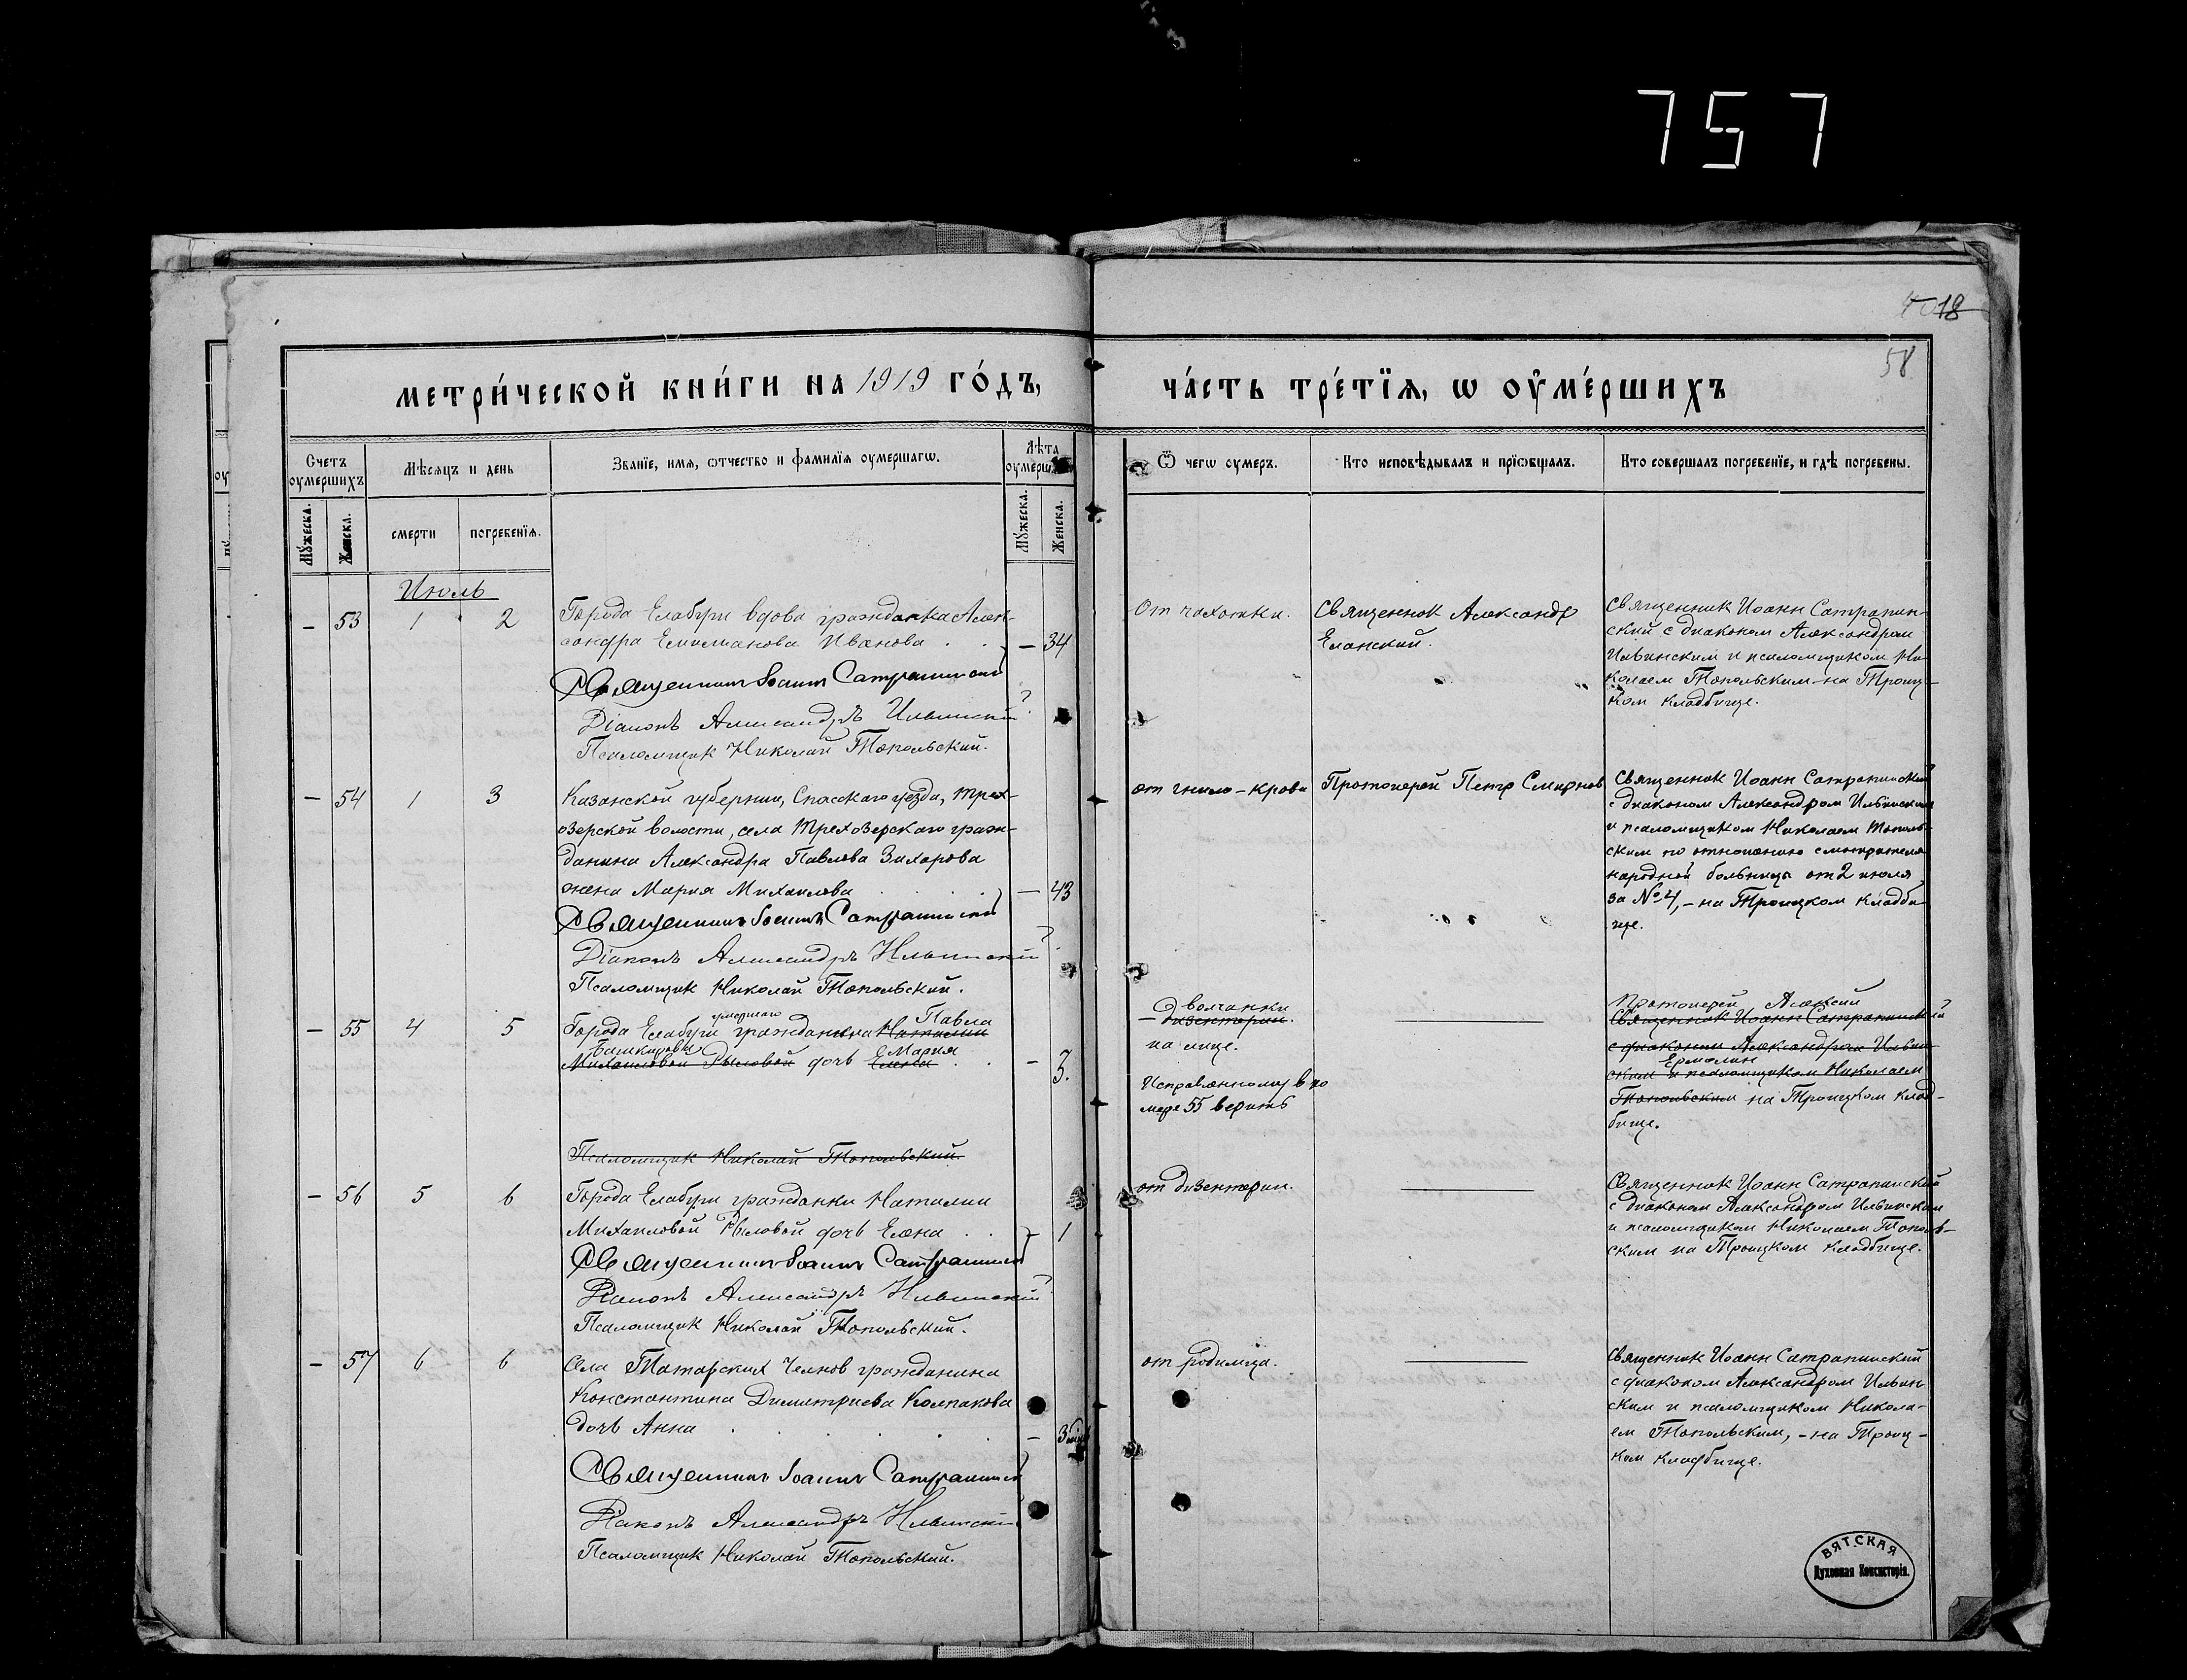 757
18
58
метри́ческой кни́ги на 1919 го́дъ,
ча́сть тре́тїѧ, ѡ оу҆ме́ршихъ
Счетъ оумершихъ
Мѣсѧцъ и день
Званїе, имѧ, ѡтчество и фамилїѧ оумершагѡ.
Лѣта
Ѿ чегѡ оумеръ.
Кто исповѣдывалъ и прїѡбщалъ.
Кто совершалъ погребенїе, и гдѣ погребены.
Мꙋжеска.
Женска.
смерти
погребенїѧ.
Мꙋжеска.
Женска.
Июль
– 53 1 2
Города Елабуги вдова гражданка Алек-
сандра Емилианова Иванова . . – 34
Священникъ Іоаннъ Сатрапинскій
Діаконъ Александръ Ильинскій
Псаломщик Николай Топольский.
От чахотки.
Священник Александр
Еланский.
Священник Иоанн Сатрапин-
ский с диаконом Александром
Ильинским и псаломщиком Ни-
колаем Топольским на Троиц-
ком кладбище.
– 54 1 3
Казанской губернии, Спасского уезда, Трех-
озерской волости, села Трехозерского граж-
данина Александра Павлова Захарова
жена Мария Михаилова . . . . – 43
Священникъ Іоаннъ Сатрапинскій
Діаконъ Александръ Ильинскій
Псаломщик Николай Топольский.
от гнило-крови
Протоиерей Петр Смирнов
Священник Иоанн Сатрапинский
с диаконом Александром Ильинским
и псаломщиком Николаем Тополь-
ским по отношению смотрителя
народной больницы от 2 июля
за № 4, – на Троицком кладби-
ще.
– 55 4 5
умершаго Павла
Города Елабуги гражданина Наталии
Башкирова Мария
Михаиловой Рыловой дочь Елена . . – 3.
Псаломщик Николай Топольский.
волчанки
дизентерии.
на лице.
Исправленному в но
мере 55 верить
Протоиерей Алексий
Священник Иоанн Сатрапинский
с диаконом Александром Ильин-
Ермолин
ским и псаломщиком Николаем
Топольским на Троицком клад-
бище.
– 56 5 6
Города Елабуги гражданки Наталии
Михаиловой Рыловой дочь Елена . . – 1
Священникъ Іоаннъ Сатрапинскій
Діаконъ Александръ Ильинскій
Псаломщик Николай Топольский.
от дизентерии.
Священник Иоанн Сатрапинский
с диаконом Александром Ильинским
и псаломщиком Николаем Тополь-
ским на Троицком кладбище.
– 57 6 6
Села Татарских Челнов гражданина
Константина Димитриева Колпакова
дочь Анна . . . . . – 3
Священникъ Іоаннъ Сатрапинскій
Діаконъ Александръ Ильинскій
Псаломщик Николай Топольский.
от родимца.
Священник Иоанн Сатрапинский
с диаконом Александром Ильин-
ским и псаломщиком Никола-
ем Топольским, – на Троиц-
ком кладбище.
ВЯТСКАЯ
Духовная Консисторія.